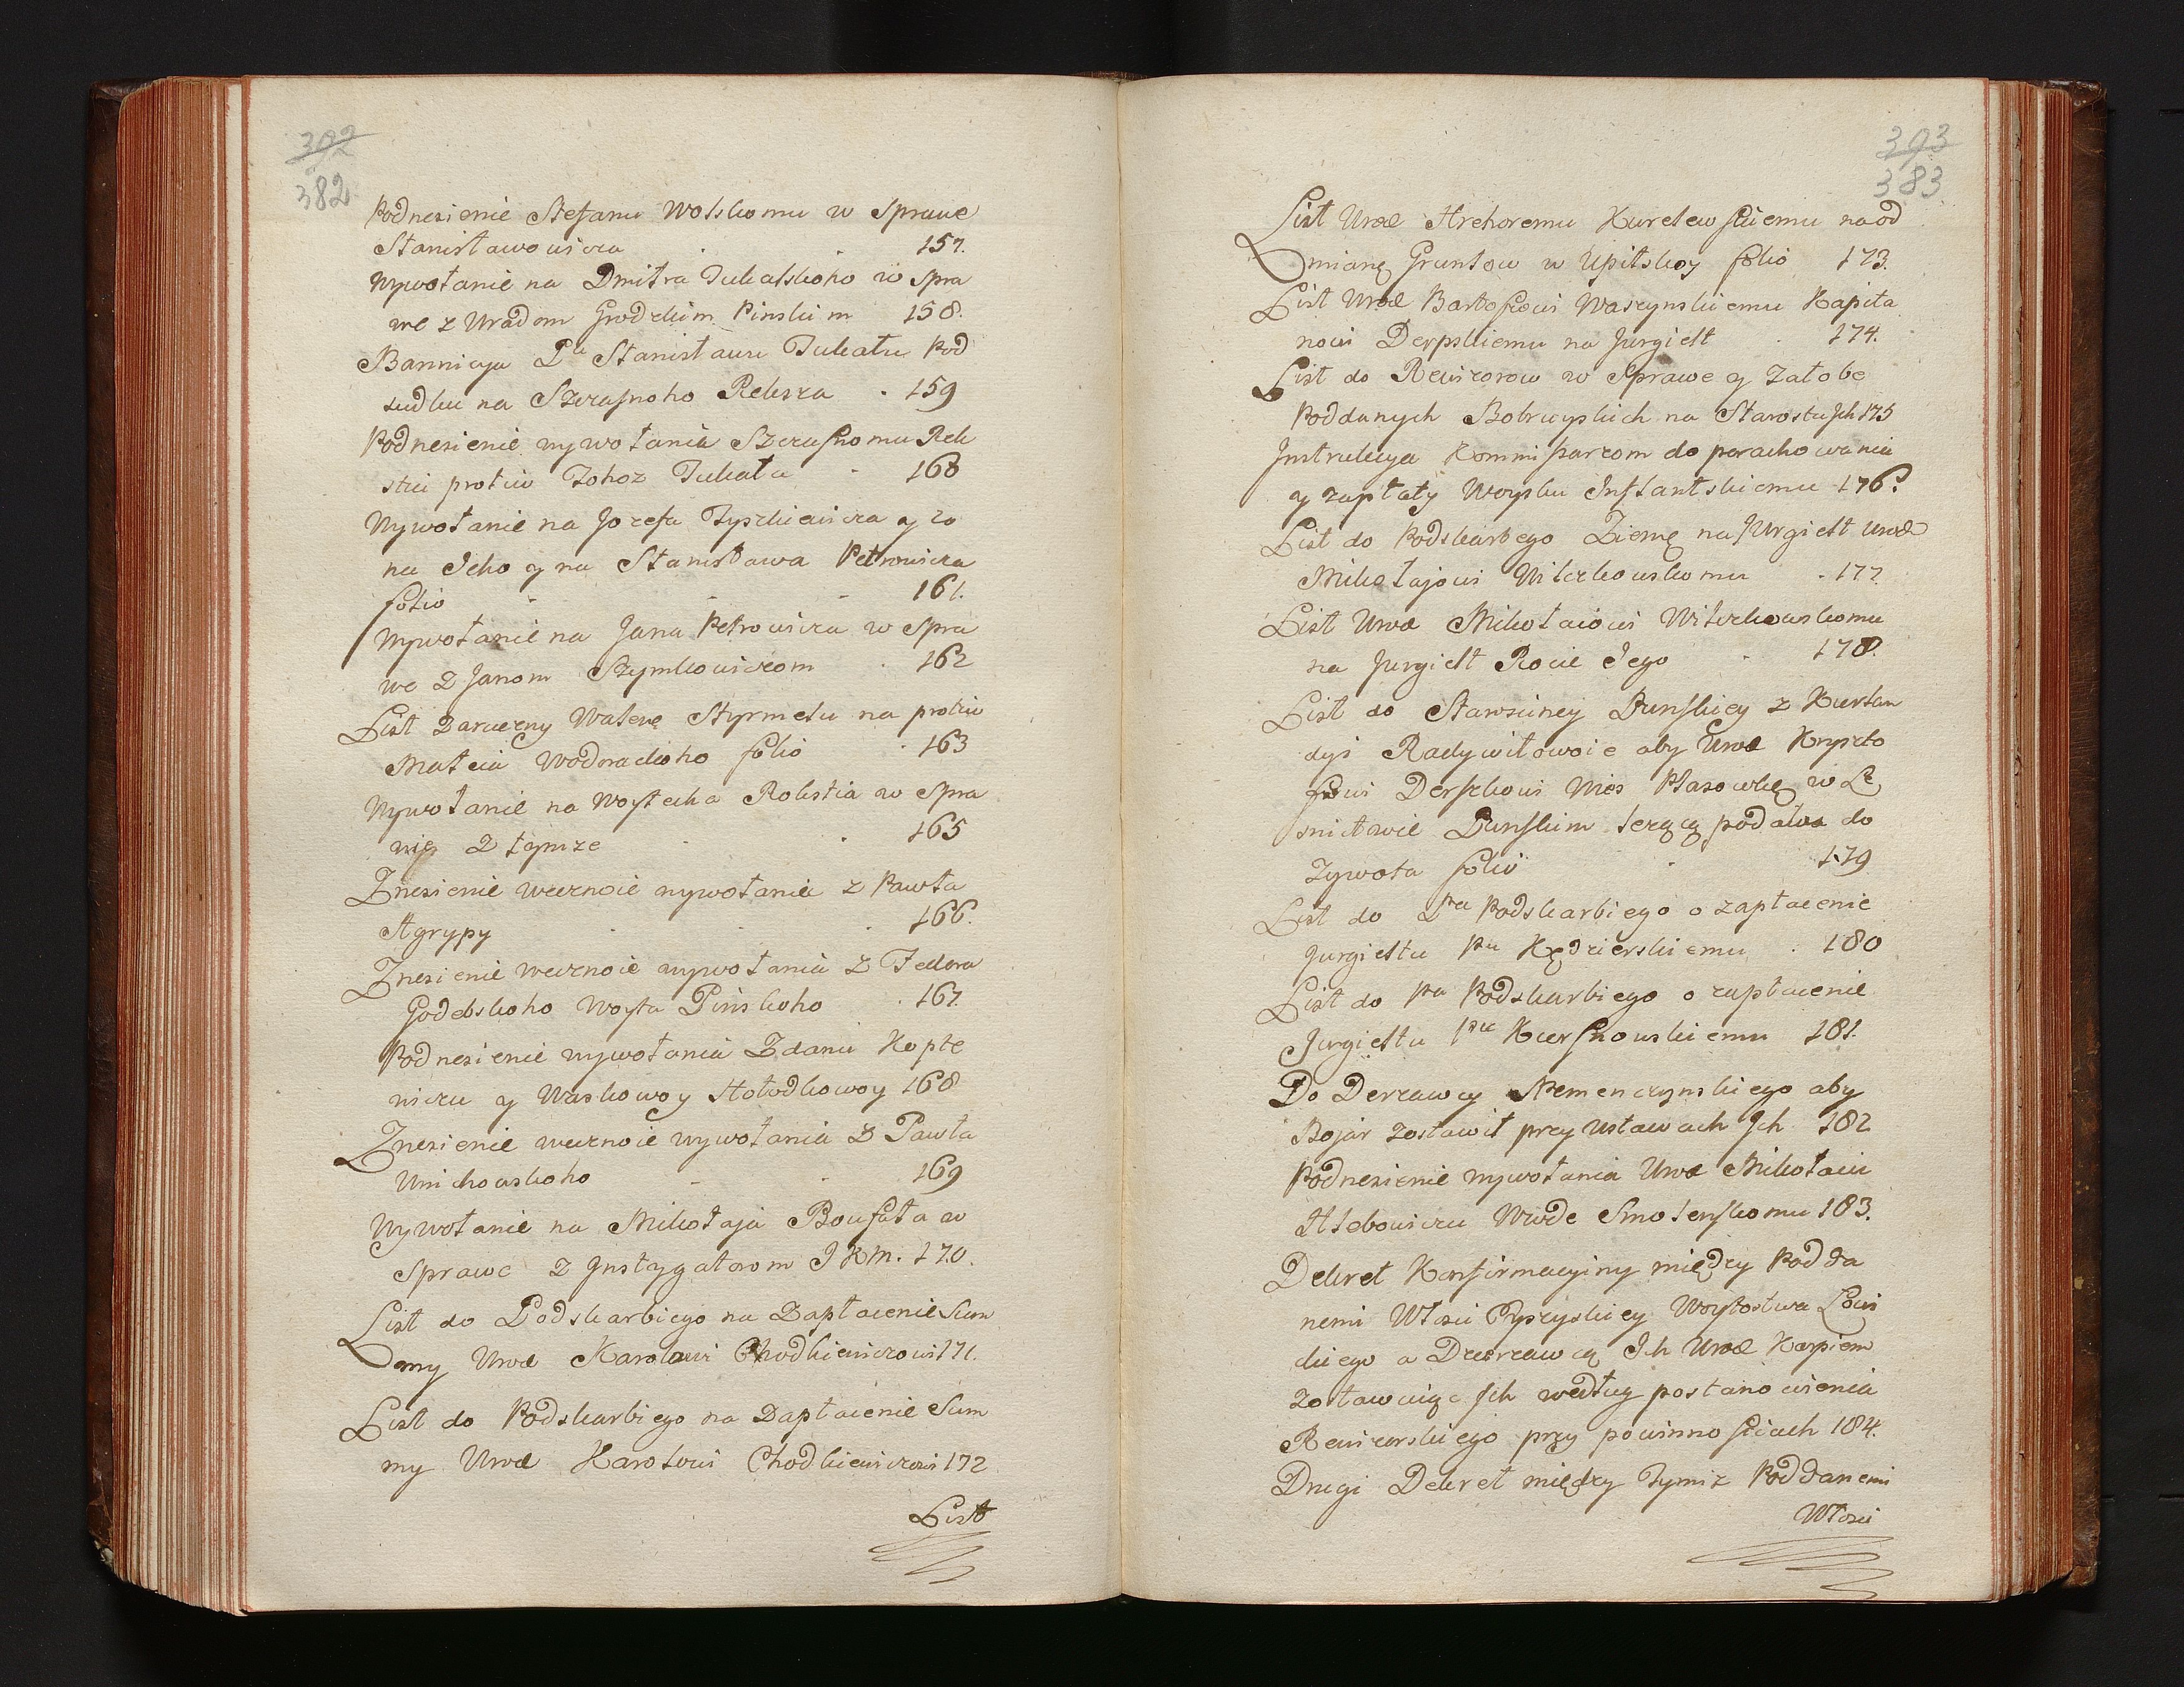 392
382
Podnesienie Stefanu Wolskomu w Sprawe
Stanisławowicza 157.
Wywołanie na Dmitra Tukalskoho w Spra
we z Uradom Grodzkim Pinskim 158.
Bannicya Pa Stanisławu Tukału Pod
sudku na Szczasnoho Reksza 159
Podnesienie wywołania Szczasnomu Rek
szu protiw Tohoz Tukała 160
Wywołanie na Jozefa Tyszkiewicza y zo
nu Jeho y na Stanisława Petrowicza
folio 161.
Wywołanie na Jana Petrowicza w Spra
we z Janom Szymkowiczom 162
List Zaruczny Walene Styrmelu na protiw
Mateia Wodoradkoho folio 163
Wywołanie na Woytecha Rokstia w Spra
wię z tymze 165
Znesienie wecznoie wywołania z Pawła
Agrypy 166.
Znesienie wecznoie wywołania z Fedora
Godebskoho Woyta Pinskoho 167.
Podnesienie wywołania Zdanu Kopte
niczu y Waskowoy Hołodkowoy 168
Znesienie wecznoie wywołania z Pawła
Unichowskoho 169
Wywołanie na Mikołaja Boufała w
Sprawe z Instygatorom J K M. 170.
List do Podskarbiego na Zapłacenie Sum
my Urod Karolowi Chodkiewiczowi 171.
List do Podskarbiego na Zapłacenie Sum
my Urod Karolowi Chodkiewiczowi 172
List
393
383
List Urod Hrehoremu Kurelewskiemu na od
mianę Gruntow w Upitskoy folio 173.
List Urod Bartoszowi Waszynskiemu Kapita
nowi Derpskiemu na Jurgielt 174.
List do Rewizorow w Sprawe y Załobe
Poddanych Bobruyskich na Starostu Ich 175
Instrukcya Kommissarzom do porachowania
y zapłaty Woysku Inflantskiemu 176.
List do Podskarbego Ziemę na Jurgielt Urod
Mikołajowi Witczkowskomu 177.
List Urod Mikołaiowi Witczkowskomu
na Jurgielt Rocie Jego 178.
List do Starosciney Dunskiey z Kurlan
dyi Radywiłowoie aby Urod Kryszto
fowi Derszkowi Wies Płasowkę w Le
snictwie Dunskim lezącą podała do
Zywota folio 179
List do Pna Podskarbiego o zapłacenie
Jurgieltu Pnu Kędzierskiemu 180
List do Pna Podskarbiego o zapłacenie
Jurgieltu Pnu Kiersnowskiemu 181.
Do Derzawcy Niemenczynskiego aby
Bojar zostawił przy Ustawach Ich 182
Podnesienie wywołania Urod Mikołaiu
Hlebowiczu Wwode Smolenskomu 183.
Dekret Konfirmacyiny między Podda
nemi Włosci Pyszyskiey Woytostwa Łowi
ckiego a Dzierzawcą Ich Urod Karpiem
Zostawuiąc Ich według postanowienia
Rewizorskiego przy powinnosciach 184.
Drugi Dekret między Tymiz Poddanemi
Włosci